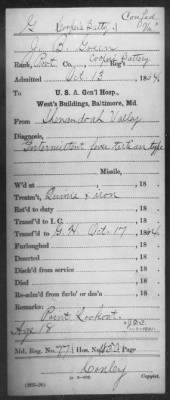 G Cooper's Batty. Confed
Va.
J. B. Green
Rank, Pvt. Co. Cooper Battery Reg't
Admitted Oct. 13, 1864
To U. S. A. Gen'l Hosp.,
West's Buildings, Baltimore, Md.
From Shenandoah Valley
Diagnosis,
Intermittent fever tertian type
Missile,
W'd at , 18 .
Treatm't, Quinia & iron
Ret'd to duty , 18 .
Transf'd to I. C. , 18 .
Transf'd to G. H. Oct. 17, 1864.
Furloughed , 18 .
Deserted , 18 .
Disch'd from service , 18 .
Died , 18 .
Re-adm'd from furlo' or des'n , 18 .
Remarks:
Point Lookout
Age 18
Md. Reg. No. 77; Hos. No. 452 Page
Conley
Copyist.